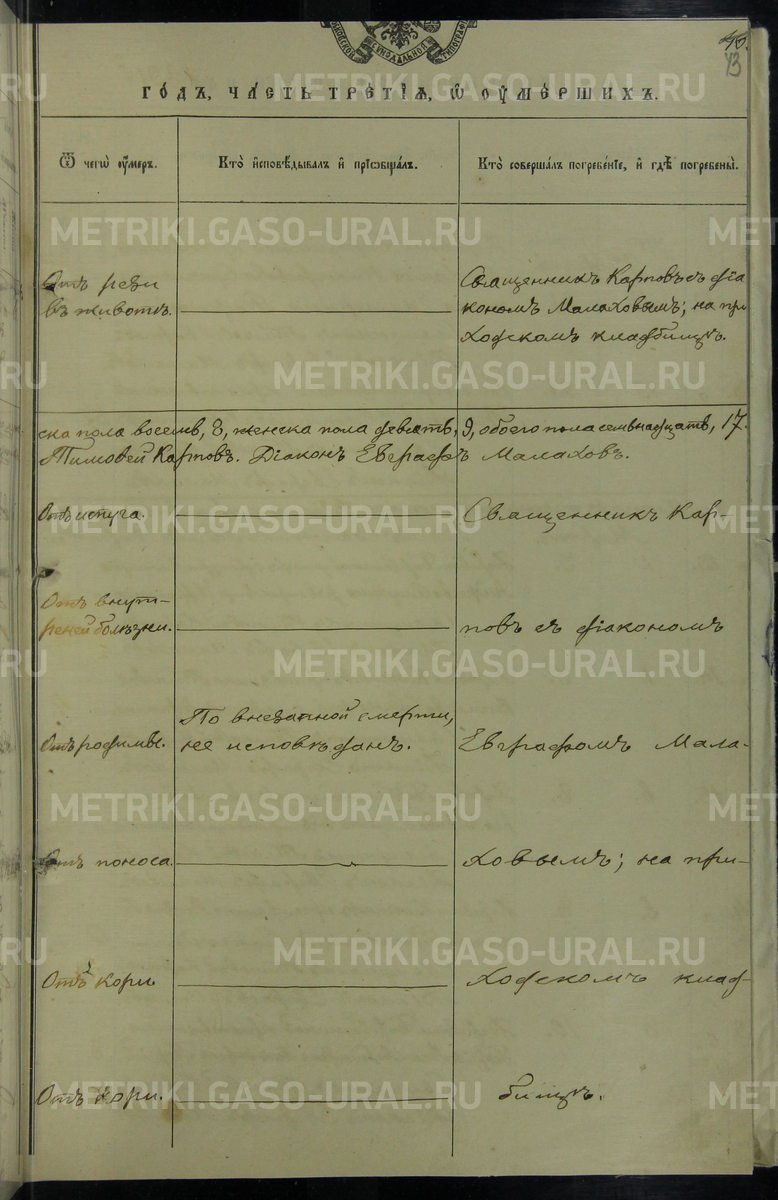 МОСКОВСКОЙ СѴНОДАЛЬНОЙ ТИПОГРАФІИ
43
ГО́ДЪ, ЧА́СТЬ ТРЕ́ТІѦ, Ѡ҆ ОУ҆МЕ́РШИХЪ.
Ѿ чегѡ̀ оу҆́меръ.
Кто̀ и҆сповѣ́дывалъ и҆ прїѡбща́лъ.
Кто̀ соверша́лъ погребе́нїе, и҆ гдѣ̀ погребены̀.
Отъ рези
въ животѣ.
Священникъ Карповъ съ діа
кономъ Малаховымъ; на при
ходскомъ кладбищѣ.
ска пола восемь, 8, женска пола девять, 9, обоего пола семнадцать, 17.
Тимоѳей Карповъ. Діаконъ Евграфъ Малаховъ.
Отъ испуга.
Священникъ Кар-
Отъ внут-
реней болѣзни.
повъ съ діакономъ
Отъ родимце.
По внезапной смерти,
не исповѣданъ.
Евграфомъ Мала-
Отъ поноса.
ховымъ; на при-
Отъ кори
ходскомъ клад-
Отъ кори.
бищѣ.
METRIKI.GASO-URAL.RU